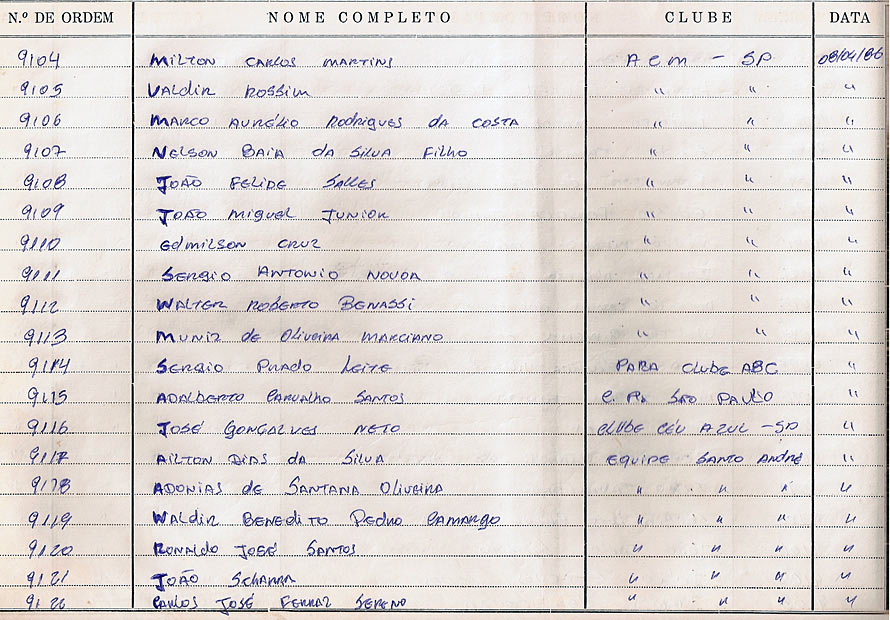 N.º DE ORDEM NOME COMPLETO CLUBE DATA
9104 MILTON CARLOS MARTINS ACM - SP 08/04/86
9105 VALDIR ROSSIM " " "
9106 MARCO AURÉLIO RODRIGUES DA COSTA " " "
9107 NELSON BAIA DA SILVA FILHO " " "
9108 JOÃO FELIPE SALLES " " "
9109 JOÃO MIGUEL JUNIOR " " "
9110 EDMILSON CRUZ " " "
9111 SERGIO ANTONIO NOVOA " " "
9112 WALTER ROBERTO BENASSI " " "
9113 MUNIZ DE OLIVEIRA MARCIANO " " "
9114 SERGIO PRADO LEITE PARA CLUBE ABC "
9115 ADALBERTO CARVALHO SANTOS C PQ SÃO PAULO "
9116 JOSÉ GONÇALVES NETO CLUBE CÉU AZUL - SP "
9117 AILTON DIAS DA SILVA EQUIPE SANTO ANDRÉ "
9118 ADONIAS DE SANTANA OLIVEIRA " " " "
9119 WALDIR BENEDITO PEDRO CAMARGO " " " "
9120 RONALDO JOSÉ SANTOS " " " "
9121 JOÃO " " " "
9122 CARLOS JOSÉ FERRAZ SERENO " " " "